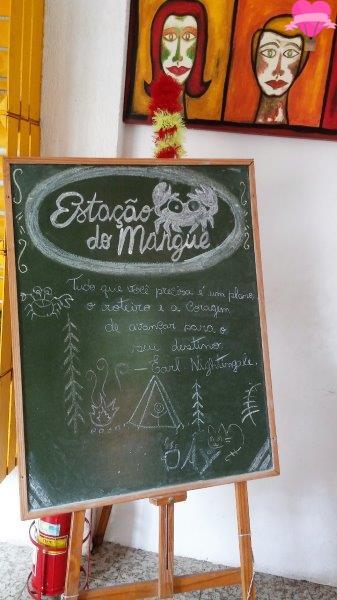 Estação
do Mangue
Tudo que você precisa é um plano,
o roteiro e a coragem
de avançar para o
seu destino
— Earl Nightingale.